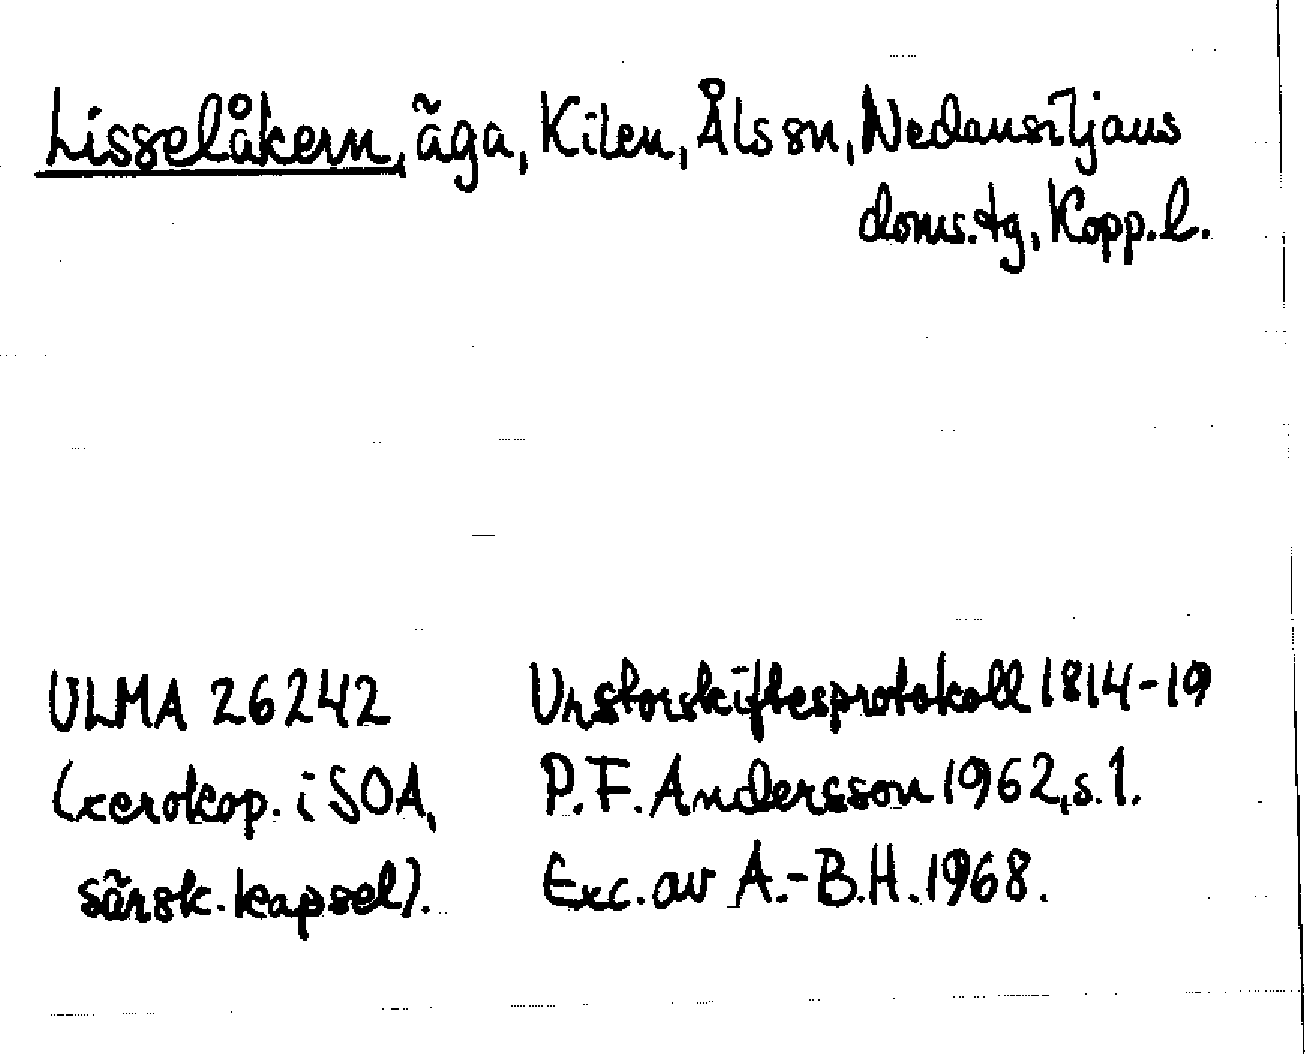 Lisselåkern, äga, Kilen, Åls sn, Nedansiljans
doms.tg, Kopp.l.
ULMA 26242
(xerokop. i SOA,
särsk. kapsel).
Ur storskiftesprotokoll 1814-19
P.F. Andersson 1962, s.1.
Exc. av A.-B.H. 1968.